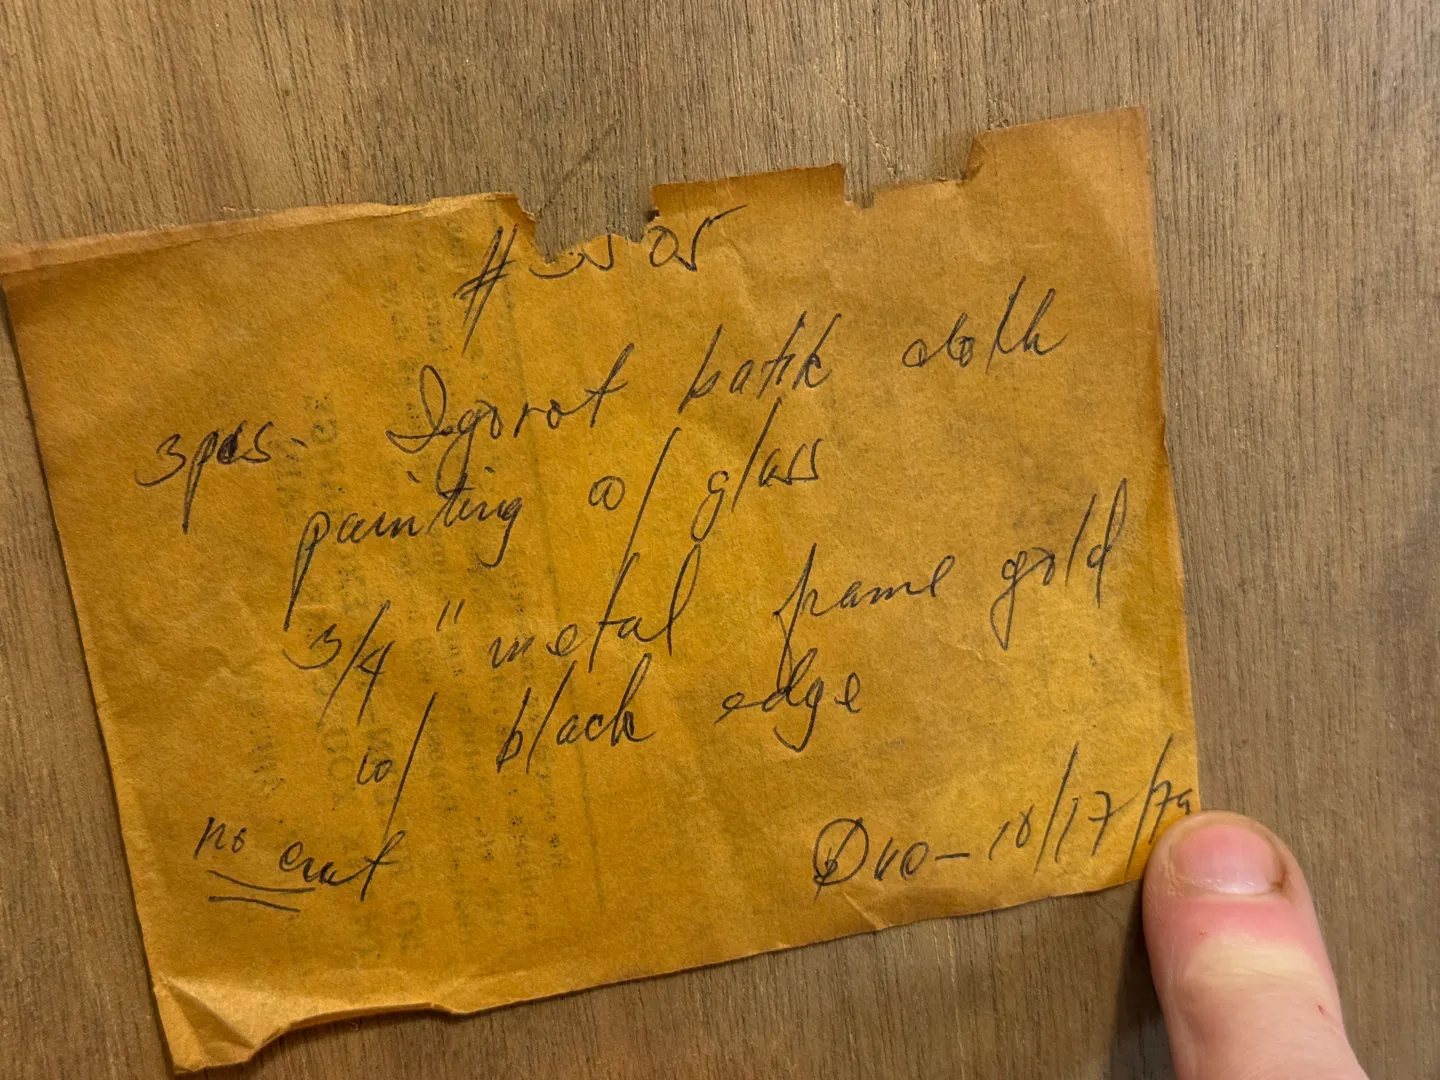 #
3pcs. Igorot batik cloth
painting w/ glass
3/4" metal frame gold
w/ black edge
no cut
Due - 10/17/79